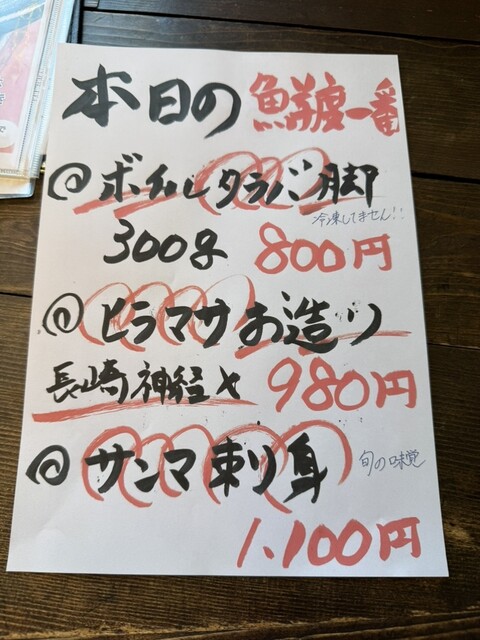 本日の 鮮度一番
ボイルタラバ脚
冷凍してません!!
300g 800円
ヒラマサお造り
長崎神経〆 980円
サンマ刺り身 旬の味覚
1,100円